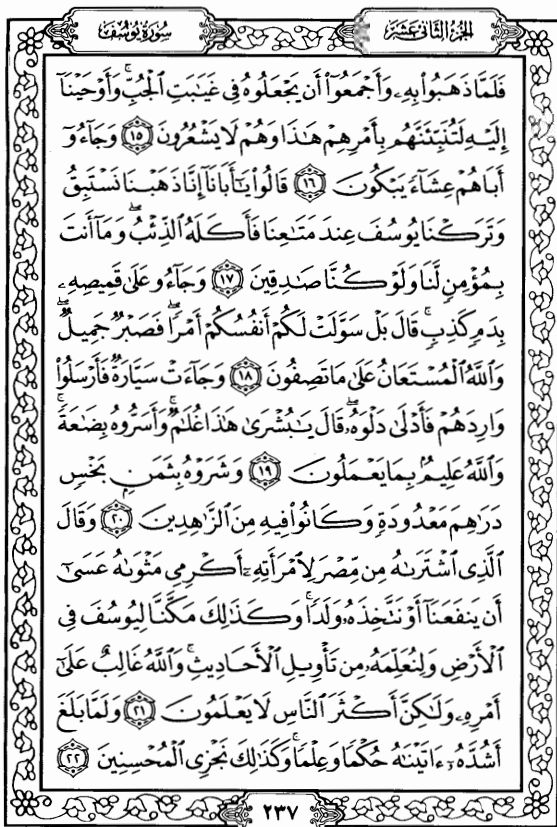 سُورَةُ يُوسُفَ
الجزء الثاني عشر
فَلَمَّا ذَهَبُوا۟ بِهِۦ وَأَجْمَعُوٓا۟ أَن يَجْعَلُوهُ فِى غَيَٰبَتِ ٱلْجُبِّ ۚ وَأَوْحَيْنَآ
إِلَيْهِ لَتُنَبِّئَنَّهُم بِأَمْرِهِمْ هَٰذَا وَهُمْ لَا يَشْعُرُونَ ١٥ وَجَآءُوٓ
أَبَاهُمْ عِشَآءً يَبْكُونَ ١٦ قَالُوا۟ يَٰٓأَبَانَآ إِنَّا ذَهَبْنَا نَسْتَبِقُ
وَتَرَكْنَا يُوسُفَ عِندَ مَتَٰعِنَا فَأَكَلَهُ ٱلذِّئْبُ ۖ وَمَآ أَنتَ
بِمُؤْمِنٍ لَّنَا وَلَوْ كُنَّا صَٰدِقِينَ ١٧ وَجَآءُو عَلَىٰ قَمِيصِهِۦ
بِدَمٍ كَذِبٍ ۚ قَالَ بَلْ سَوَّلَتْ لَكُمْ أَنفُسُكُمْ أَمْرًا ۖ فَصَبْرٌ جَمِيلٌ ۖ
وَٱللَّهُ ٱلْمُسْتَعَانُ عَلَىٰ مَا تَصِفُونَ ١٨ وَجَآءَتْ سَيَّارَةٌ فَأَرْسَلُوا۟
وَارِدَهُمْ فَأَدْلَىٰ دَلْوَهُۥ ۖ قَالَ يَٰبُشْرَىٰ هَٰذَا غُلَٰمٌ ۚ وَأَسَرُّوهُ بِضَٰعَةً ۚ
وَٱللَّهُ عَلِيمٌۢ بِمَا يَعْمَلُونَ ١٩ وَشَرَوْهُ بِثَمَنٍۭ بَخْسٍ
دَرَٰهِمَ مَعْدُودَةٍ وَكَانُوا۟ فِيهِ مِنَ ٱلزَّٰهِدِينَ ٢٠ وَقَالَ
ٱلَّذِى ٱشْتَرَىٰهُ مِن مِّصْرَ لِٱمْرَأَتِهِۦٓ أَكْرِمِى مَثْوَىٰهُ عَسَىٰٓ
أَن يَنفَعَنَآ أَوْ نَتَّخِذَهُۥ وَلَدًا ۚ وَكَذَٰلِكَ مَكَّنَّا لِيُوسُفَ فِى
ٱلْأَرْضِ وَلِنُعَلِّمَهُۥ مِن تَأْوِيلِ ٱلْأَحَادِيثِ ۚ وَٱللَّهُ غَالِبٌ عَلَىٰٓ
أَمْرِهِۦ وَلَٰكِنَّ أَكْثَرَ ٱلنَّاسِ لَا يَعْلَمُونَ ٢١ وَلَمَّا بَلَغَ
أَشُدَّهُۥٓ ءَاتَيْنَٰهُ حُكْمًا وَعِلْمًا ۚ وَكَذَٰلِكَ نَجْزِى ٱلْمُحْسِنِينَ ٢٢
٢٣٧